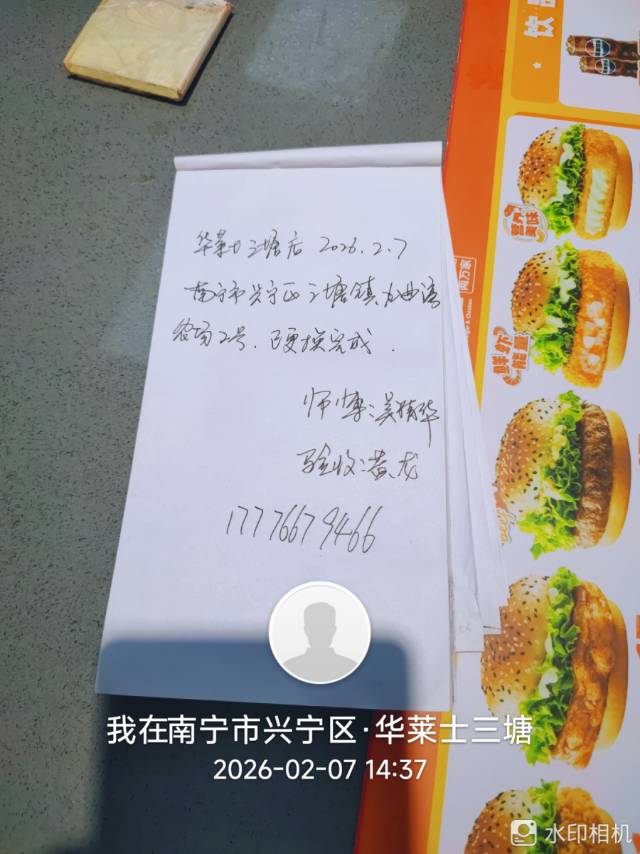 华莱士三塘店 2026.2.7
南宁市兴宁区三塘镇九曲湾
农场2号. 已更换完成.
师傅:吴精华
验收:黄龙
17776679466
我在南宁市兴宁区·华莱士三塘
2026-02-07 14:37
水印相机
饮品
鲜虾
能量